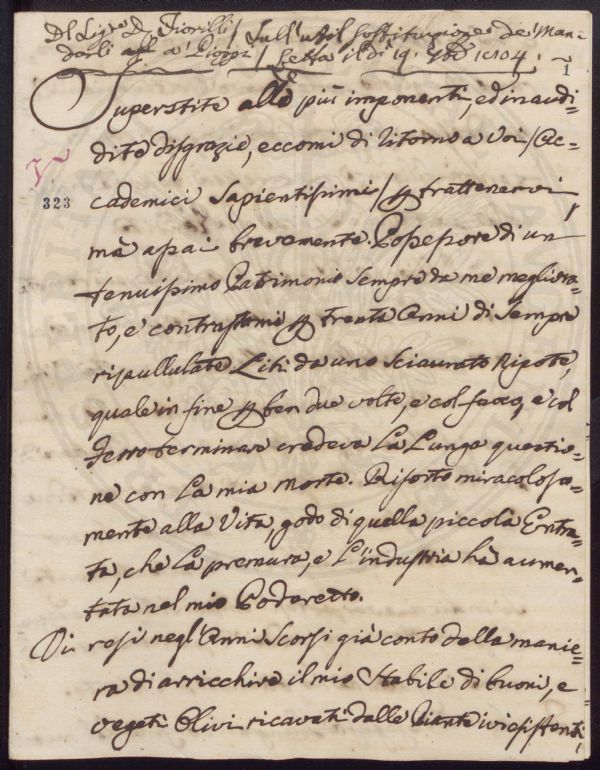 Del Sigre D. Fiorilli / Sull'util sostituzione de' Man=
dorli a' Pioppi / Letta il dì 19. 1804.
1
Superstite alle più imponenti, ed inaudi=
dite disgrazie, eccomi di ritorno a voi / Ac=
323
cademici Sapientissimi / per trattenervi,
mà assai brevemente. Possessore di un
tenuissimo Patrimonio sempre da me megliora=
to, e contrastami per trenta Anni di sempre
ripullulate Liti da uno sciaurato Nipote,
quale in fine per ben due volte, e col foco, e col
ferro terminare credeva La Lunga questio=
ne con La mia morte. Risorto miracolosa=
mente alla Vita, godo di quella piccola Entra=
ta, che La premura, e L'industria hà aumen=
tata nel mio Poderetto.
Vi resi negl'Anni Scorsi già conto della manie=
ra di arricchire il mio Stabile di buoni, e
vegeti Olivi ricavati dalle Piante ivi esistenti